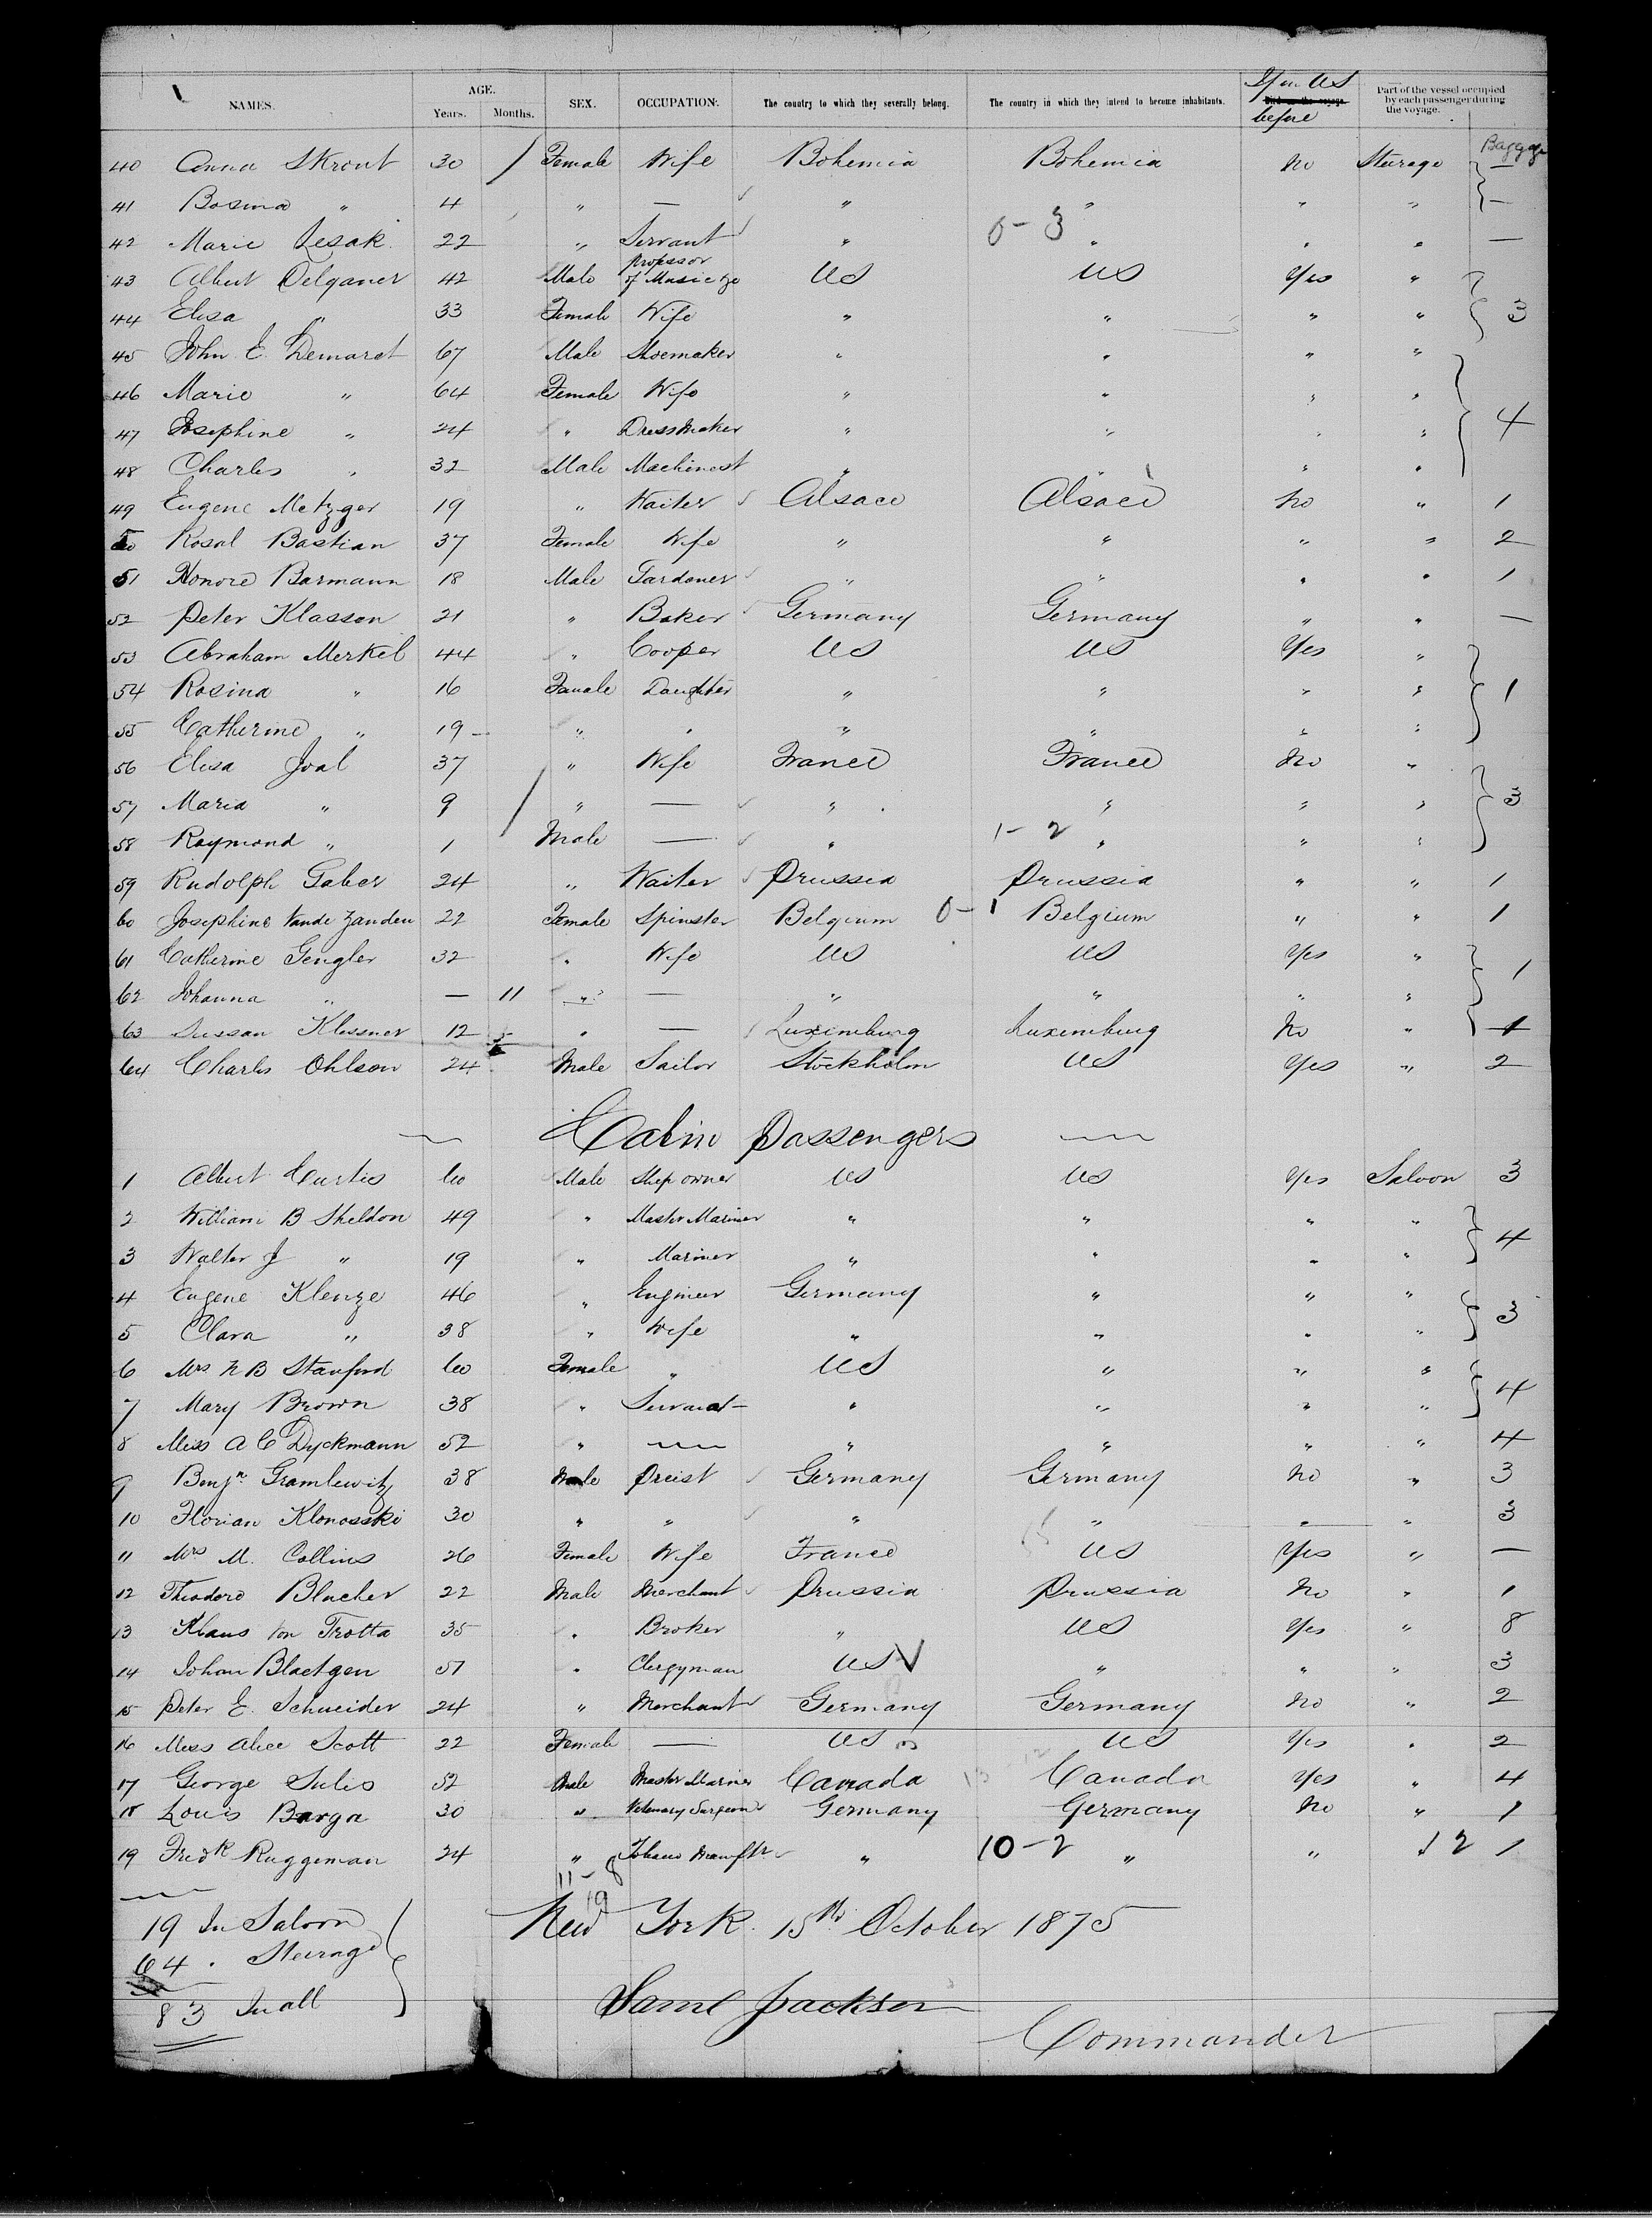 NAMES. AGE. Years. Months. SEX. OCCUPATION. The country to which they severally belong. The country in which they intend to become inhabitants. If in US before Died on the voyage. Part of the vessel occupied by each passenger during the voyage. Baggage
40 Anna Skront 30 Female Wife Bohemia Bohemia No Steerage —
41 Bosina " 4 " — " " " " —
42 Marie Lesak 22 " Servant " 0-3 " " " —
43 Albert Delganer 42 Male professor of Music &c US US Yes "
44 Elisa " 33 Female Wife " " " " 3
45 John E. Demaret 67 Male Shoemaker " " " "
46 Marie " 64 Female Wife " " " "
47 Josephine " 24 " Dressmaker " " " " 4
48 Charles " 32 Male Machinest " " " "
49 Eugene Metzger 19 " Waiter Alsace Alsace No " 1
50 Rosal Bastian 37 Female Wife " " " " 2
51 Honore Barmann 18 Male Gardener " " " " 1
52 Peter Klasson 21 " Baker Germany Germany " " —
53 Abraham Merkel 44 " Cooper US US Yes "
54 Rosina " 16 Female Daughter " " " " 1
55 Catherine " 19 — " " " " " "
56 Elisa Joal 37 " Wife France France No "
57 Maria " 9 " — " " " " 3
58 Raymond " 1 Male — " 1-2 " " "
59 Rudolph Gaber 24 " Waiter Prussia Prussia " " 1
60 Josephine Vande Zanden 22 Female Spinster Belgium 0-1 Belgium " " 1
61 Catherine Gengler 32 " Wife US US Yes "
62 Johanna " — 11 " — " " " " 1
63 Sussan Klessner 12 " — Luxemburg Luxemburg No " 1
64 Charles Ohlson 24 Male Sailor Stockholm US Yes " 2
Cabin Passengers
1 Albert Curtis 60 Male Ship owner US US Yes Saloon 3
2 William B Sheldon 49 " Master Mariner " " " "
3 Walter J " 19 " Mariner " " " " 4
4 Eugene Klenze 46 " Engineer Germany " " "
5 Clara " 38 " Wife " " " " 3
6 Mrs N B Stanford 60 Female " US " " "
7 Mary Brown 38 " Servant " " " " 4
8 Miss A C Dyckmann 52 " — " " " " 4
9 Benjn Gramlewitz 38 Male Preist Germany Germany No " 3
10 Florian Klonosski 30 " " " " " " 3
11 Mrs M. Collins 26 Female Wife France US Yes " —
12 Theodore Blucher 22 Male Merchant Prussia Prussia No " 1
13 Klaus von Trotta 35 " Broker " US Yes " 8
14 Johan Blaetgen 51 " Clergyman US " " " 3
15 Peter E. Schneider 24 " Merchant Germany Germany No " 2
16 Miss Alice Scott 22 Female — US US Yes " 2
17 George Sulis 52 Male Master Mariner Canada 13 Canada Yes " 4
18 Louis Barga 30 " Veterinary Surgeon Germany Germany No " 1
19 Fredk Ruggeman 24 " Tobacco " 10-2 " " " 12 1
11-8
19
19 In Saloon
64 . Steerage
83 In all
New York. 15th October 1875
Saml Jackson
Commander